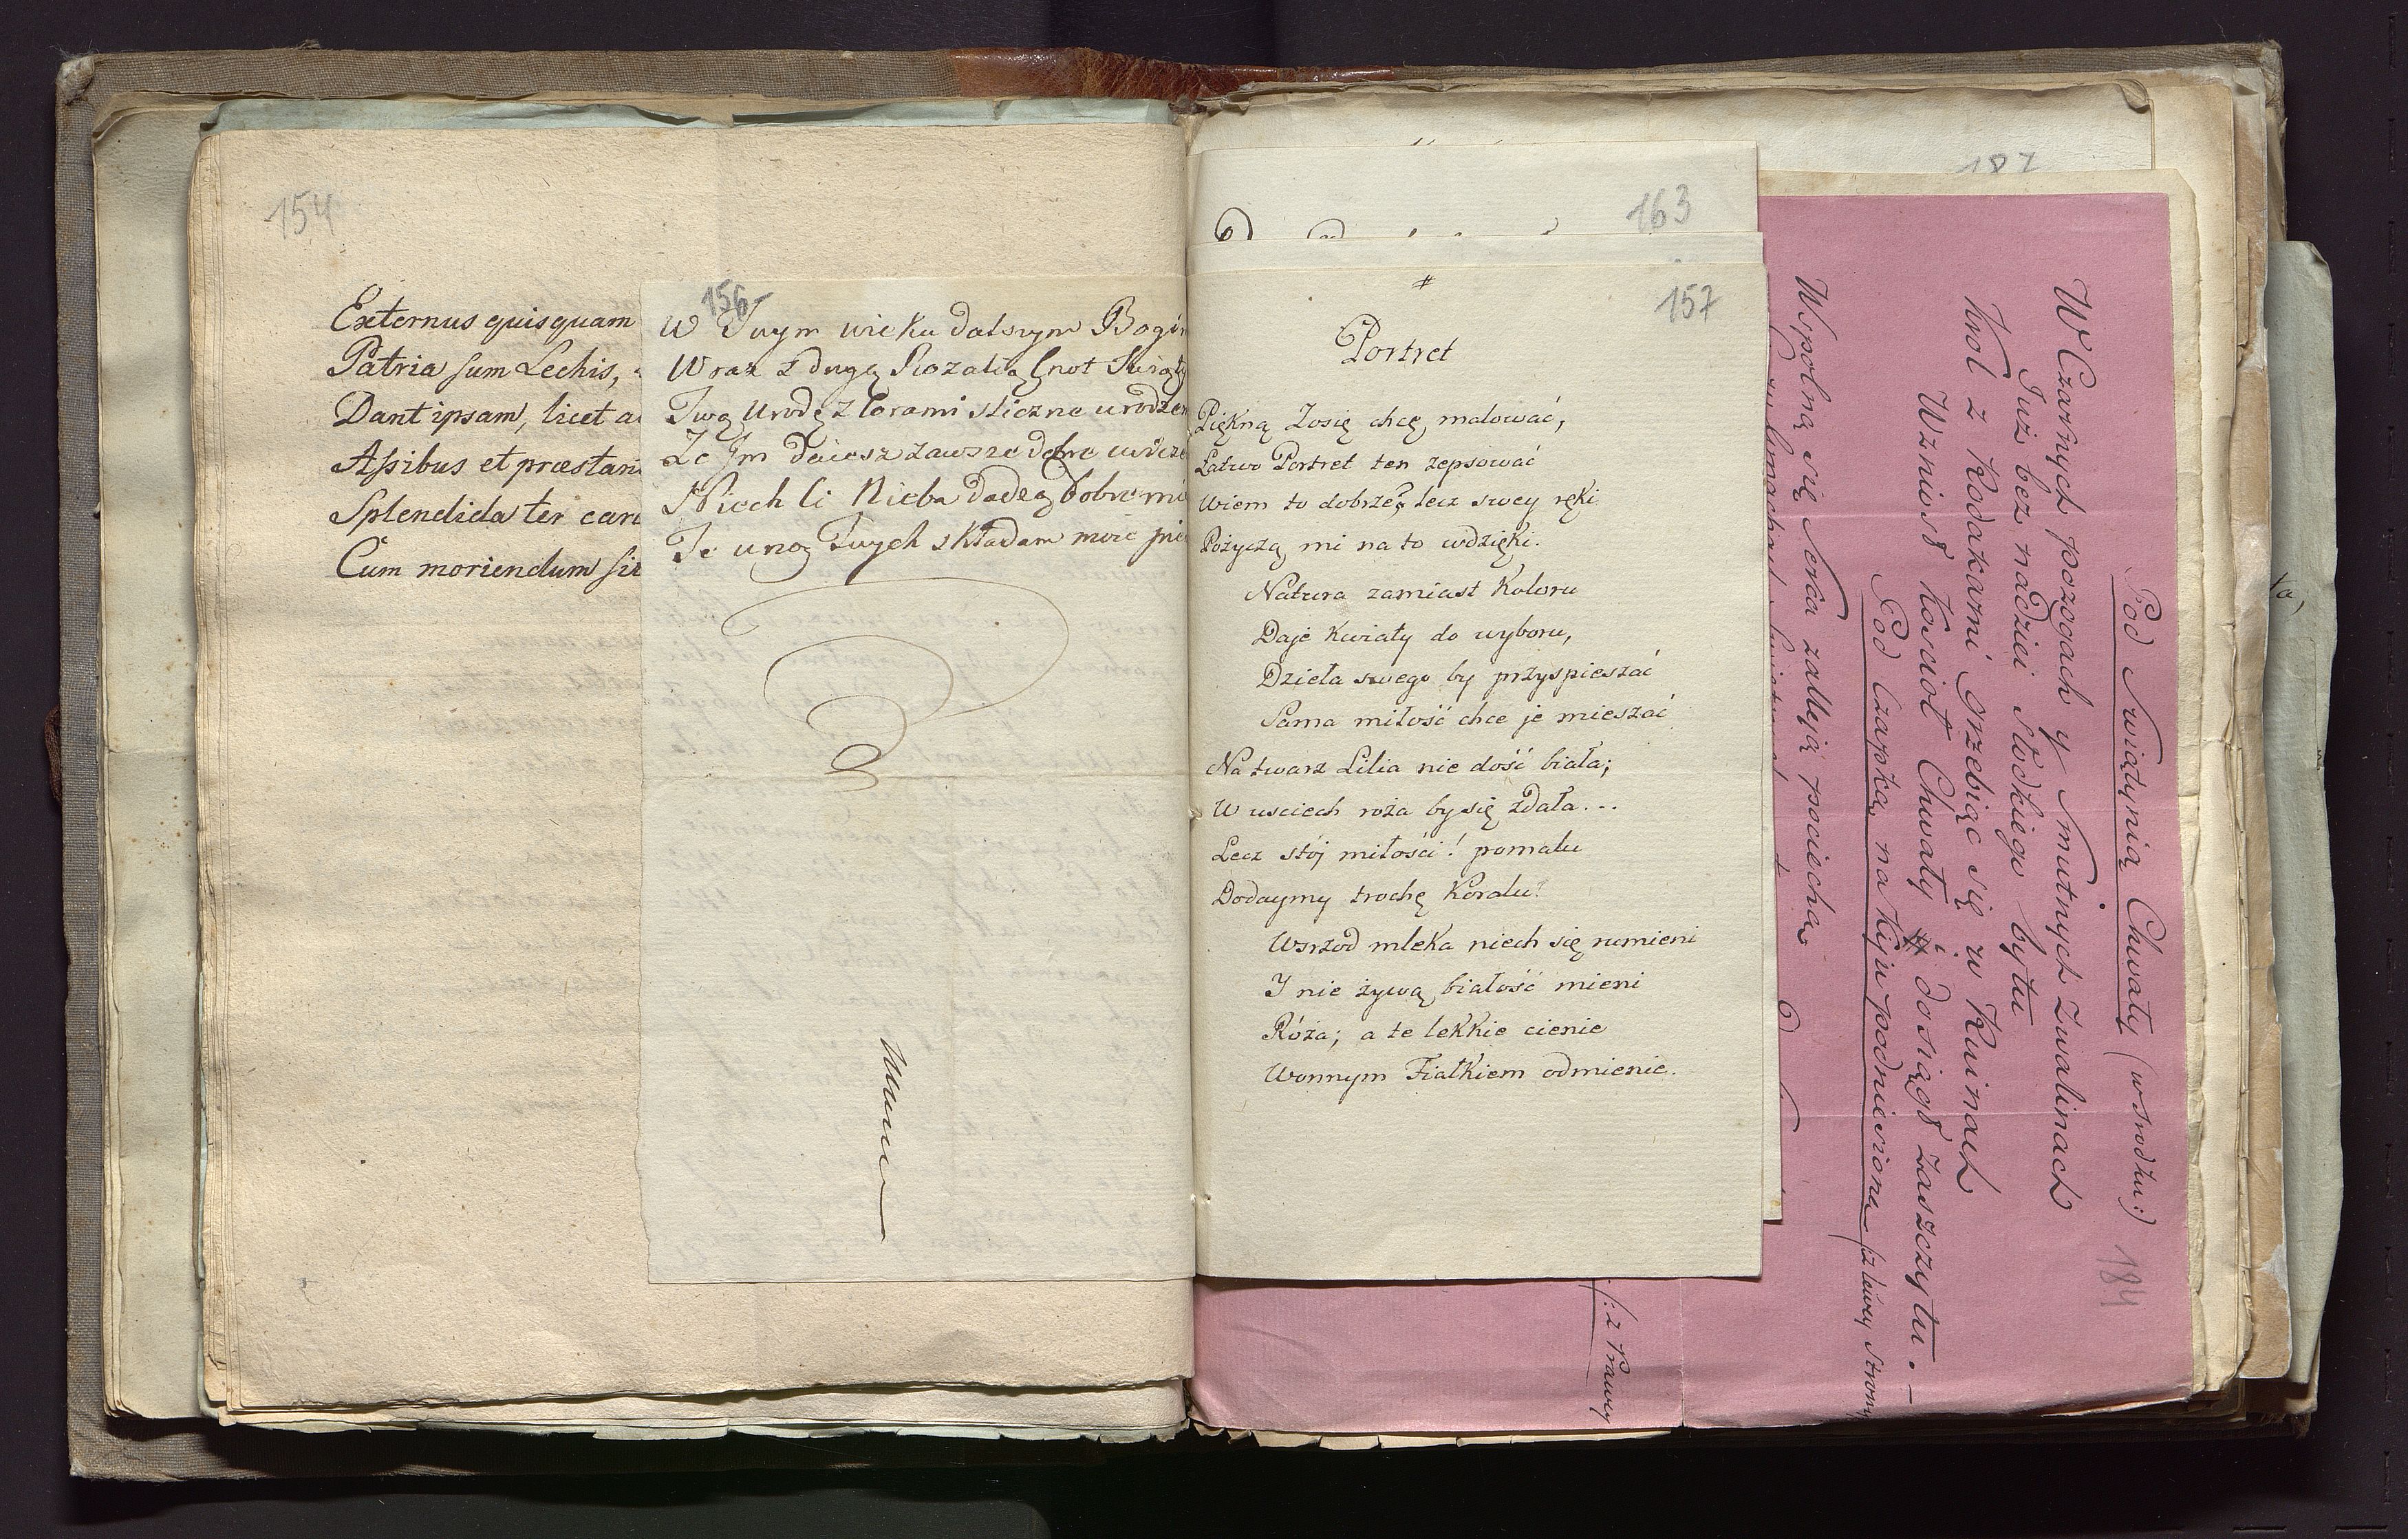 154
Externus quisquam
Patria sum Lechis,
Dant ipsam, licet
Assibus et præstan
Splendida ter
Cum moriendum sit
156
W Twym wieku dalszym Bogi
Wraz z drugą Rozalią Cnot
Twą Urodę z Corami sliczne
Ze Jm daiesz zawsze dobre
Niech Ci Nieba dadzą dobre
Ja u nog Twych składam moie
163
187
157
#
Portret
Piękną Zosię chcę malować,
Łatwo Portret ten zepsować
Wiem to dobrze, lecz swey ręki
Pożyczą mi na to wdzięki.
Natura zamiast Koloru
Daje Kwiaty do wyboru,
Dzieła swego by przyspieszać
Sama miłość chce je mieszać
Na twarz Lilia nie dość biała;
W usciech roża by się zdała...
Lecz stój miłości! pomału
Dodaymy trochę Koralu!
Wsrzod mleka niech się rumieni
I nie żywą białość mieni
Róża; a te lekkie cienie
Wonnym Fiałkiem odmienie.
Pod Swiątynią Chwały (w srodku:)
184
W Czarnych pożogach y smutnych Zwalinach
Już bez nadziei Słodkiego bytu
Krol z Rodakami grzebiąc się w Ruinach
Wzniosł Kościoł Chwały i dosiągł Zaszczytu. –
Pod Czapką na Kiju podniesioną (z lewey strony
Wspolną się serca zaleją pociechą
(: z Prawey
ta,